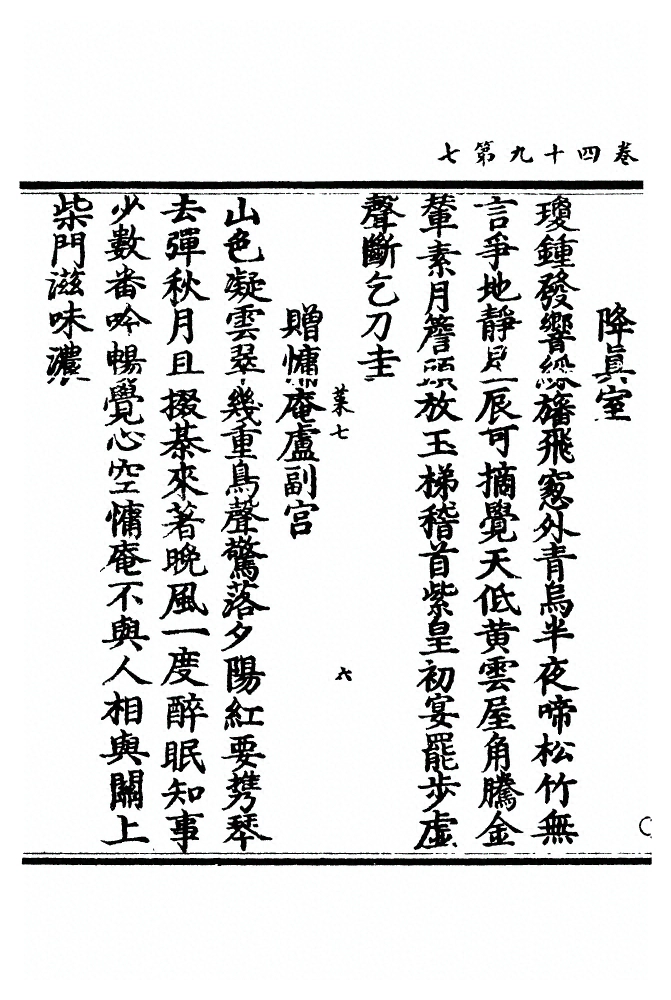 卷四十九第七
降眞室
瓊鍾發響綠旛飛窓外青鳥半夜啼松竹無
言爭地靜星辰可摘覺天低黄雲屋角騰金
輦素月簷頭放玉梯稽首紫皇初宴罷步虚
聲斷乞刀圭
菜七
六
贈慵庵盧副宫
山色凝雲翠幾重鳥聲驚落夕陽紅要携琴
去彈秋月且掇棊來著晚風一度醉眠知事
少數畨吟暢覺心空慵庵不與人相與關上
柴門滋味濃